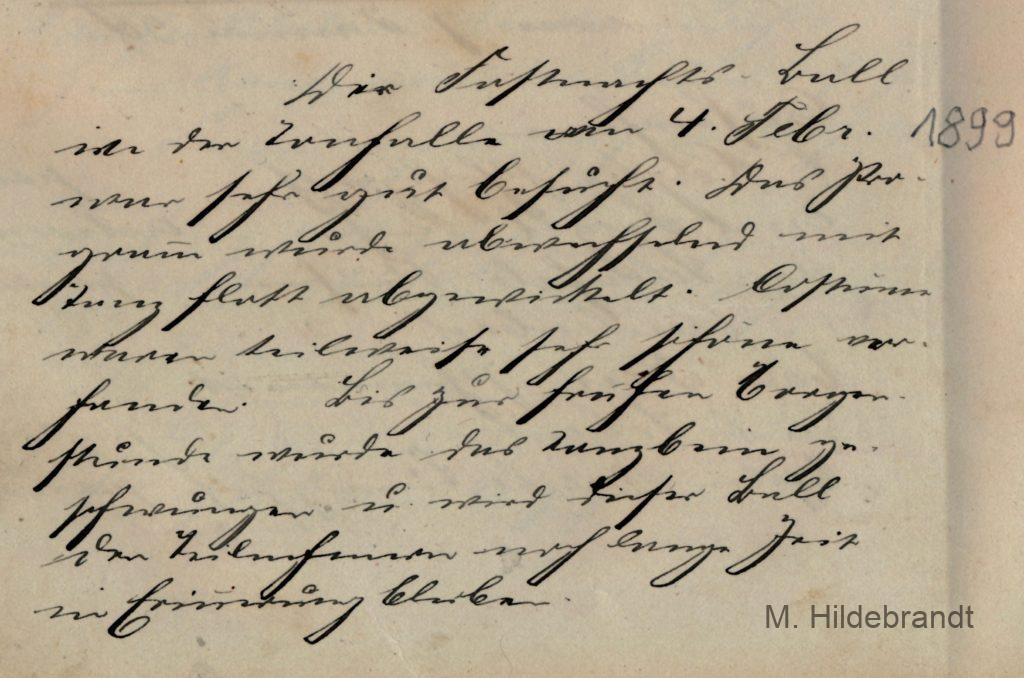 Der Fastnachts-Ball
in der Tonhalle am 4. Febr. 1899
war sehr gut besucht. Das Pro-
gram̅ wurde abwechselnd mit
Tanz flott abgewickelt. Costüme
waren teilweise sehr schöne vor-
handen. Bis zur frühen Morgen-
stunde wurde das Tanzbein ge-
schwungen u. wird dieser Ball
den Teilnehmern noch lange Zeit
in Erinnerung bleiben.
M. Hildebrandt